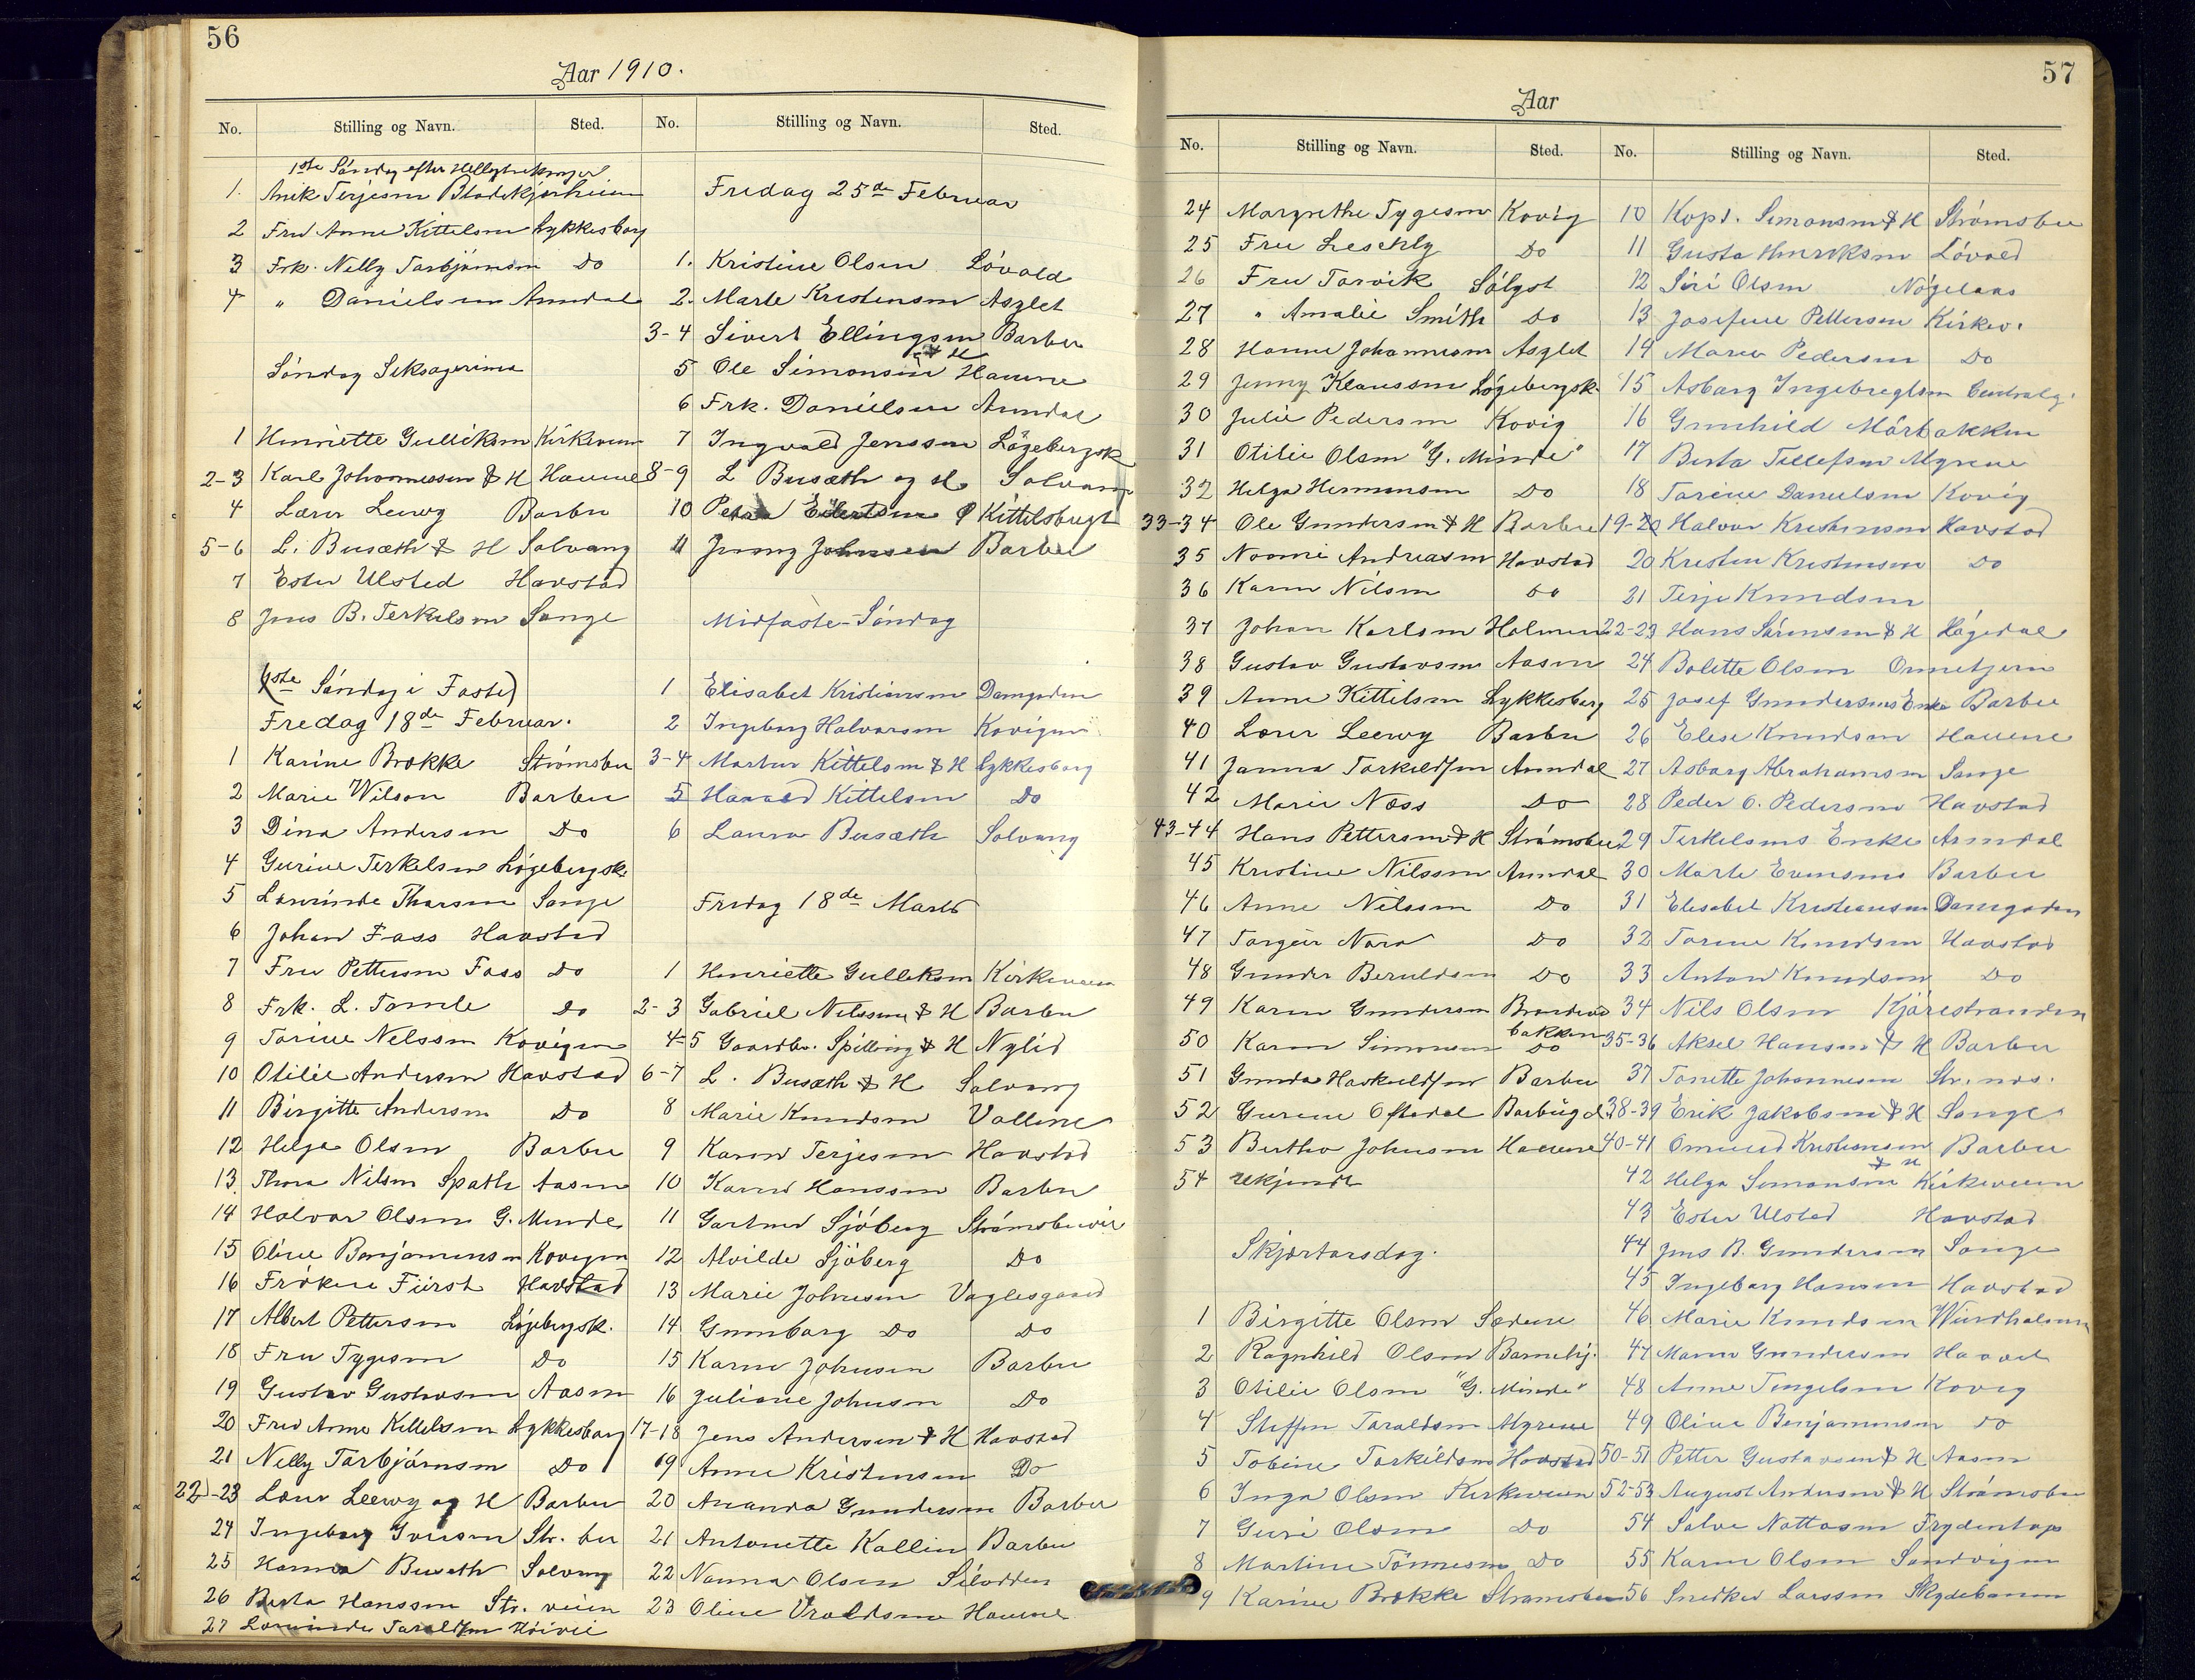 56
Aar 1910.
No. Stilling og Navn. Sted.
1ste Søndag efter
1. Anik Terjesen
2 Fru Anne Kittelsen Lykkesborg
3 Frk. Nelly Torbjörnsen Do
4 " Danielsen Arendal
Søndag Seksagesima
1 Henriette Gulliksen Kirkeveien
2-3 Karl Johannessen & H Hauene
4 Lærer Leewy Barbu
5-6 L. Busæth & H Solvang
7 Ester Ulsted Havstad
8 Jens B. Terkelsen Songe
(1ste Søndag i Faste)
Fredag 18de Februar.
1 Karine Brække Strømsbu
2 Marie Wilson Barbu
3 Dina Andersen Do
4 Gurine Terkelsen Løgebergsk.
5 Lovinde Thorsen Songe
6 Johan Foss Havstad
7 Fru Pettersen Foss Do
8 Frk. L. Do
9 Torine Nelssen Kovigen
10 Otilie Andersen Havstad
11 Birgitte Andersen Do
12 Helge Olsen Barbu
13. Thora Nilsen Spath Aasen
14 Halvor Olsen G. Minde
15 Oline Benjaminsen Kovigen
16 Frøkene Fürst Havstad
17 Albert Pettersen Løgebergsk.
18 Fru Tygesen Do
19 Gustav Gustavsen Aasen
20 Fru Anne Kittelsen Lykkesborg
21 Nelly Torbjörnsen Do
22-23 Lærer Leewy og H Barbu
24 Ingeborg Iversen Str. bu
25 Hanna Busæth Solvang
26 Berta Hanssen Str. veien
27 Lovinde Taraldsen
No. Stilling og Navn. Sted.
Fredag 25de Februar
1. Kristine Olsen Løvold
2. Marte Kristensen Asylet
3-4 Sivert Ellingsen & H Barbu
5 Ole Simonsen Hauene
6 Frk. Danielsen Arendal
7 Ingvald Jenssen Løgebergsk
8-9 L Busæth og H Solvang
10 Petra Eilertsen Kittelsbugt
11 Jenny Johnsen Barbu
Midfaste-Søndag
1 Elisabet Kristiansen Damgaden
2 Ingeborg Halvorsen Kovigen
3-4 Morten Kittelsen & H Lykkesborg
5 Harald Kittelsen Do
6 Laura Busæth Solvang
Fredag 18de Marts
1 Henriette Gulleksen Kirkeveien
2-3 Gabriel Nilssen & H Barbu
4-5 Gaardbr. Spilling & H Nylid
6-7 L. Busæth & H Solvang
8 Marie Knudsen Vollene
9 Karen Terjesen Havstad
10 Karen Hanssen Barbu
11 Gartner Sjöberg Strømsbuveien
12 Alvilde Sjöberg Do
13 Marie Johnsen Vaglesgaard
14 Gunnborg Do Do
15 Karen Johnsen Barbu
16 Juliane Johnsen Do
17-18 Jens Andersen & H Havstad
19 Anne Kristensen Do
20 Ananda Gundersen Barbu
21 Antonette Kallin Barbu
22 Nanna Olsen Silodden
23 Oline Vraldsen Hauene
57
Aar
No. Stilling og Navn. Sted.
24 Margrethe Tygesen Kovig
25 Fru Leschly Do
26 Fru Torvik
27 " Amalie Smith Do
28 Hanne Johannesen Asylet
29 Jenny Klaussen Løgebergsk.
30 Julie Pedersen Kovig
31 Otilie Olsen "G. Minde"
32 Helga Hermansen Do
33-34 Ole Gundersen & H Barbu
35 Noomi Andreasen Havstad
36 Karen Nilsen Do
37 Johan Karlsen Holmen
38 Gustav Gustavsen Aasen
39 Anne Kittelsen Lykkesborg
40 Lærer Leewy Barbu
41 Janna Torkildsen Arendal
42 Marie Næss Do
43-44 Hans Pettersen & H Strømsbu
45 Kristine Nilssen Arendal
46 Anne Nilssen Do
47 Torgeir Nora Do
48 Gunder Beruldsen Do
49 Karen Gundersen bakken
50 Karen Simonsen Do
51 Gunda Havkeldsen Barbu
52 Gurine Oftedal Barbugd.
53 Bertha Johnsen Hauene
54
Skjærtorsdag.
1 Birgitte Olsen Sædene
2 Ragnhild Olsen Barnehj.
3 Otilie Olsen "G. Minde"
4 Steffen Taraldsen Myrene
5 Tobine Torkildsen Havstad
6 Inga Olsen Kirkeveien
7 Guri Olsen Do
8 Martine Tönnesen Do
9 Karine Brække Strømsbu
No. Stilling og Navn. Sted.
10 Kapt. Simonsen & H Strømsbu
11 Gusta Henriksen Løvold
12 Siri Olsen
13 Josefine Pettersen Kirkev.
14 Maren Pedersen Do
15 Asborg Ingebregtsen
16 Gunhild Mörtbakken
17 Berta Tellefsen Myrene
18 Torine Danielsen Kovig
19-20 Halvor Kristensen Havstad
20 Kristen Kristensen Do
21 Terje Knudsen
22-23 Hans Sörensen & H Løgedal
24 Bolette Olsen
25 Josef Gundersens Enke Barbu
26 Elise Knudsen Hauene
27 Asborg Abrahamsen Songe
28 Peder O. Pedersen Havstad
29 Terkelsens Enke Arendal
30 Marte Evensens Barbu
31 Elisabet Kristiansen Damgaden
32 Torine Knudsen Havstad
33 Anton Knudsen Do
34 Nils Olsen Kjörestranden
35-36 Aksel Hansen & H Barbu
37 Tonette Johannesen Str. næs.
38-39 Erik Jakobsen & H Songe
40-41 Omund Kristiansen & H Barbu
42 Helga Simonsen Kirkeveien
43 Ester Ulsted Havstad
44 Jens B. Gundersen Songe
45 Ingeborg Hansen Havstad
46 Marie Knudsen Windholmen
47 Maren Gundersen
48 Anne Kovig
49 Oline Benjaminsen Do
50-51 Petter Gustavsen & H Aasen
52-53 August Andersen & H Strømsbu
54 Salve Nottosen Frydentop
55 Karen Olsen Sandvigen
56 Snedker Larssen Skydebanen